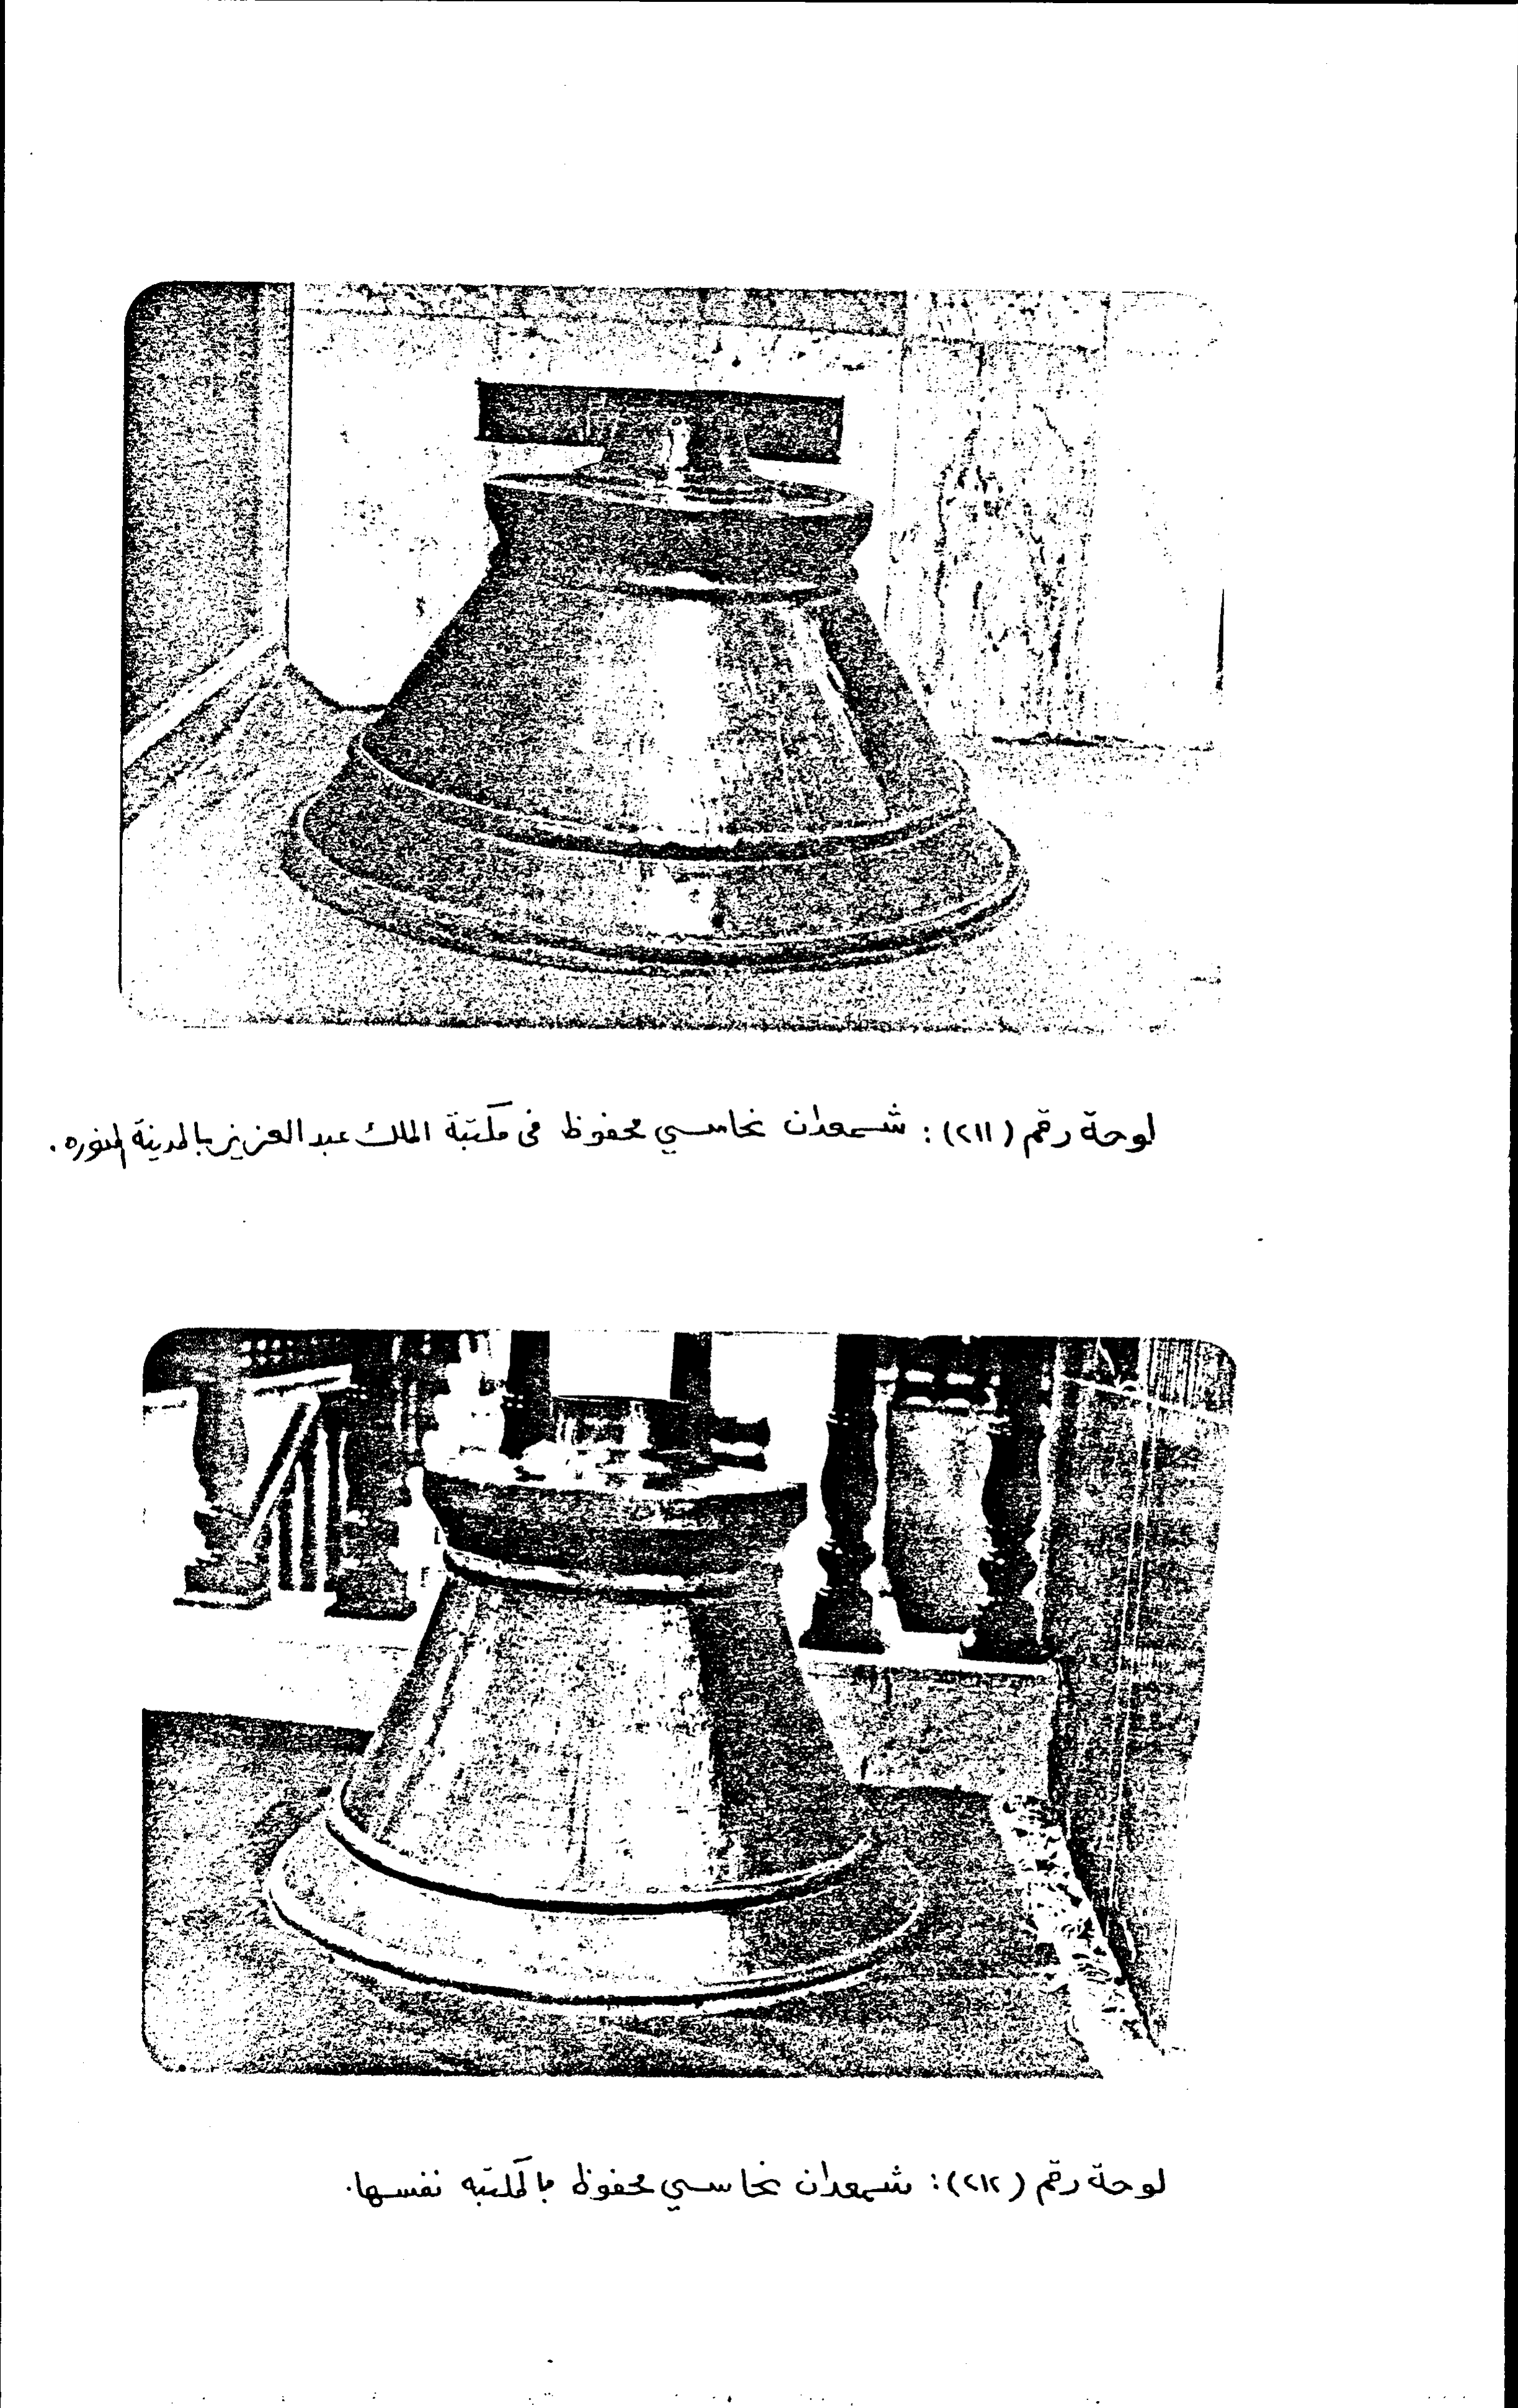 لوحة رقم (٢١١): شمعدان نحاسي محفوظ فى مكتبة الملك عبد العزيز بالمدينة المنوره.
لوحة رقم (٢١٢): شمعدان نحاسي محفوظ بالمكتبه نفسها.